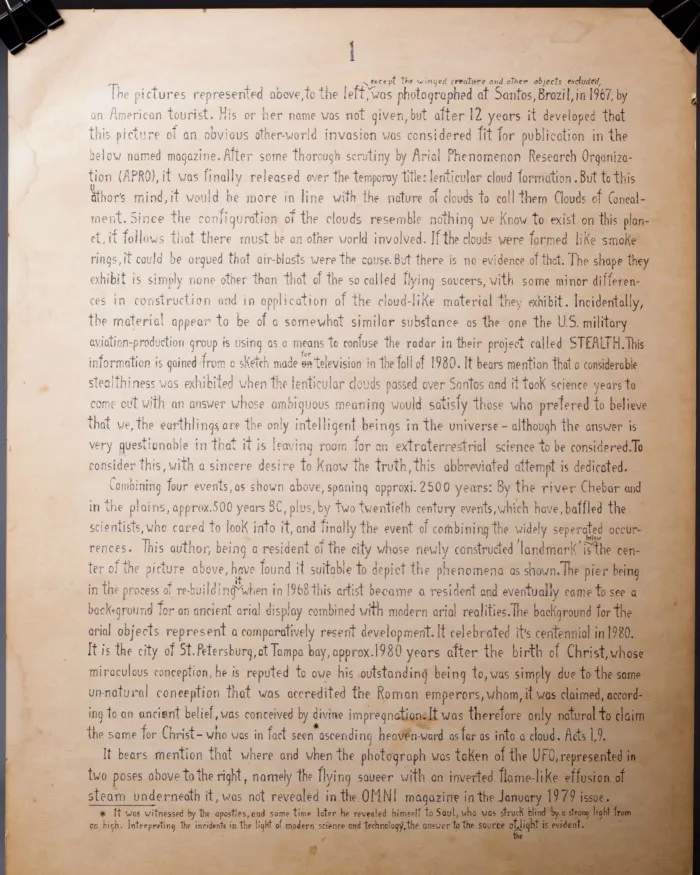 1
except the winged creature and other objects excluded,
The pictures represented above, to the left, was photographed at Santos, Brazil, in 1967, by
an American tourist. His or her name was not given, but after 12 years it developed that
this picture of an obvious other-world invasion was considered fit for publication in the
below named magazine. After some thorough scrutiny by Arial Phenomenon Research Organiza-
tion (APRO), it was finally released over the temporay title: lenticular cloud formation. But to this
athor's mind, it would be more in line with the nature of clouds to call them Clouds of Conceal-
ment. Since the configuration of the clouds resemble nothing we know to exist on this plan-
et, it follows that there must be an other world involved. If the clouds were formed like smoke
rings, it could be argued that air-blasts were the cause. But there is no evidence of that. The shape they
exhibit is simply none other than that of the so called flying saucers, with some minor differen-
ces in construction and in application of the cloud-like material they exhibit. Incidentally,
the material appear to be of a somewhat similar substance as the one the U.S. military
aviation-production group is using as a means to confuse the radar in their project called STEALTH. This
information is gained from a sketch made for television in the fall of 1980. It bears mention that a considerable
stealthiness was exhibited when the lenticular clouds passed over Santos and it took science years to
come out with an answer whose ambiguous meaning would satisfy those who prefered to believe
that we, the earthlings, are the only intelligent beings in the universe – although the answer is
very questionable in that it is leaving room for an extraterrestrial science to be considered. To
consider this, with a sincere desire to know the truth, this abbreviated attempt is dedicated.
Combining four events, as shown above, spaning approxi. 2500 years: By the river Chebar and
in the plains, approx. 500 years BC, plus, by two twentieth century events, which have, baffled the
scientists, who cared to look into it, and finally the event of combining the widely seperated occur-
rences. This author, being a resident of the city whose newly constructed 'landmark' is below the cen-
ter of the picture above, have found it suitable to depict the phenomena as shown. The pier being
in the process of re-building it when in 1968 this artist became a resident and eventually came to see a
background for an ancient arial display combined with modern arial realities. The background for the
arial objects represent a comparatively resent development. It celebrated it's centennial in 1980.
It is the city of St. Petersburg, at Tampa bay, approx. 1980 years after the birth of Christ, whose
miraculous conception, he is reputed to owe his outstanding being to, was simply due to the same
un-natural conception that was accredited the Roman emperors, whom, it was claimed, accord-
ing to an ancient belief, was conceived by divine impregnation. It was therefore only natural to claim
the same for Christ – who was in fact seen * ascending heaven-ward as far as into a cloud. Acts 1,9.
It bears mention that where and when the photograph was taken of the UFO, represented in
two poses above to the right, namely the flying saucer with an inverted flame-like effusion of
steam underneath it, was not revealed in the OMNI magazine in the January 1979 issue.
* It was witnessed by the apostles, and some time later he revealed himself to Saul, who was struck blind by a strong light from
on high. Interpreting the incidents in the light of modern science and technology, the answer to the source of the light is evident.